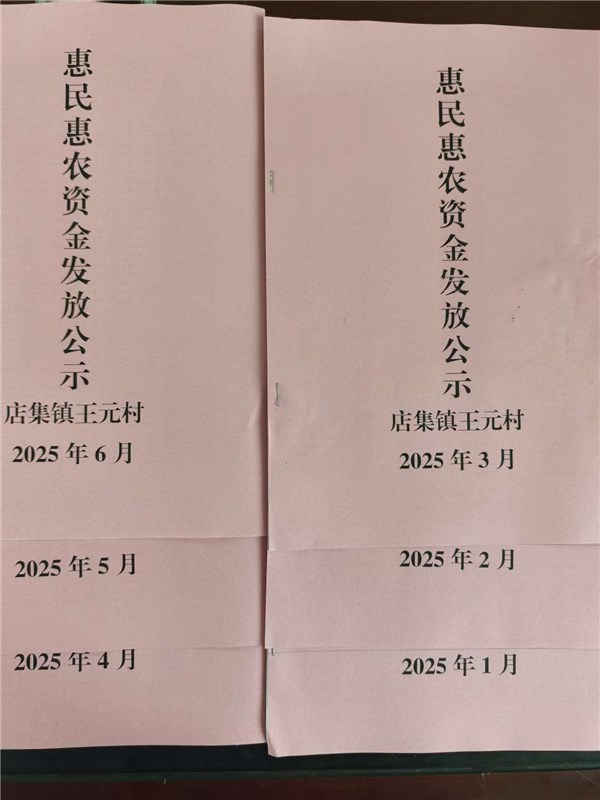 惠民惠农资金发放公示
店集镇王元村
2025 年 6 月
2025 年 5 月
2025 年 4 月
惠民惠农资金发放公示
店集镇王元村
2025 年 3 月
2025 年 2 月
2025 年 1 月